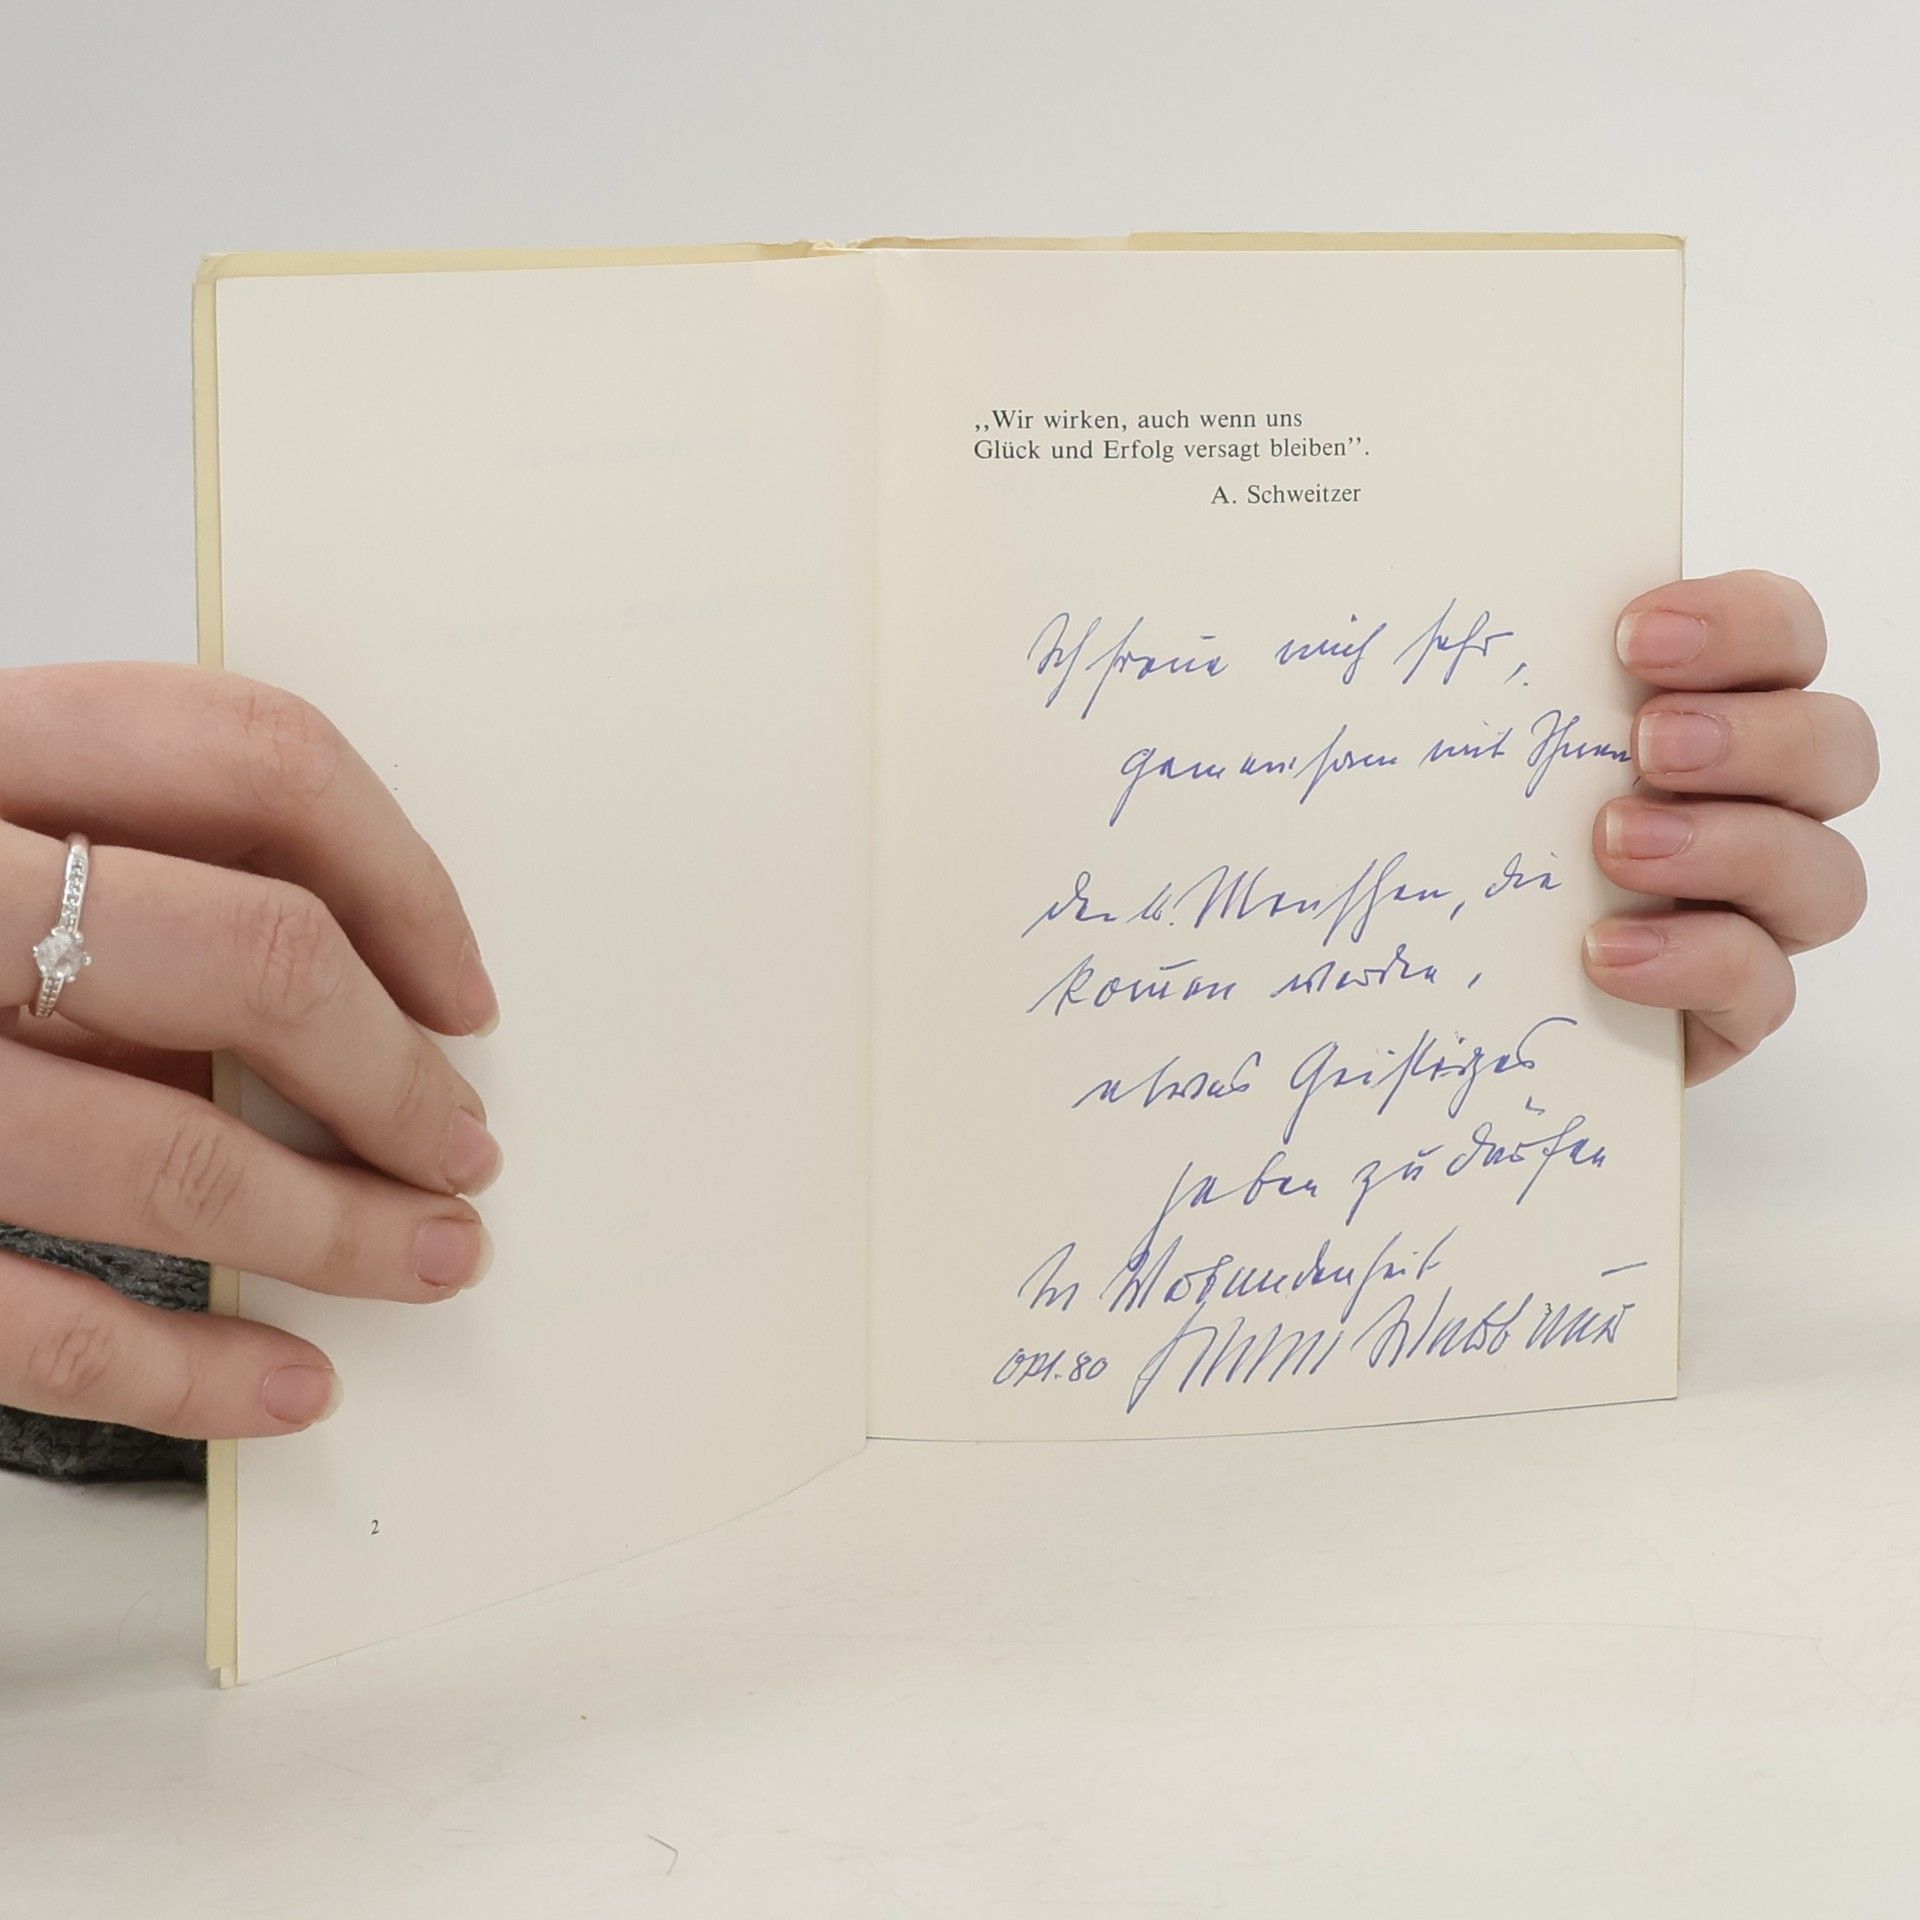 ,,Wir wirken, auch wenn uns
Glück und Erfolg versagt bleiben”.
A. Schweitzer
Ich freue mich sehr,
gemeinsam mit Ihnen,
den Menschen, die
kom̄en werden,
etwas
haben zu dürfen
In Verbundenheit
80
3
2